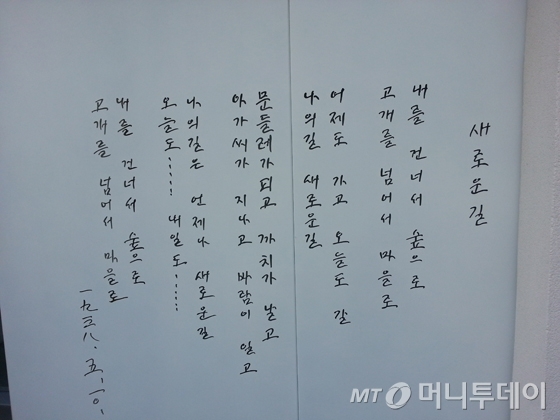 새로운길
내를 건너서 숲으로
고개를 넘어서 마을로
어제도 가고 오늘도 갈
나의길 새로운길
문들레가피고 까치가 날고
아가씨가 지나고 바람이 일고
나의길은 언제나 새로운길
오늘도…… 내일도……
내를 건너서 숲으로
고개를 넘어서 마을로
一九三八.五.一〇.
MT 머니투데이